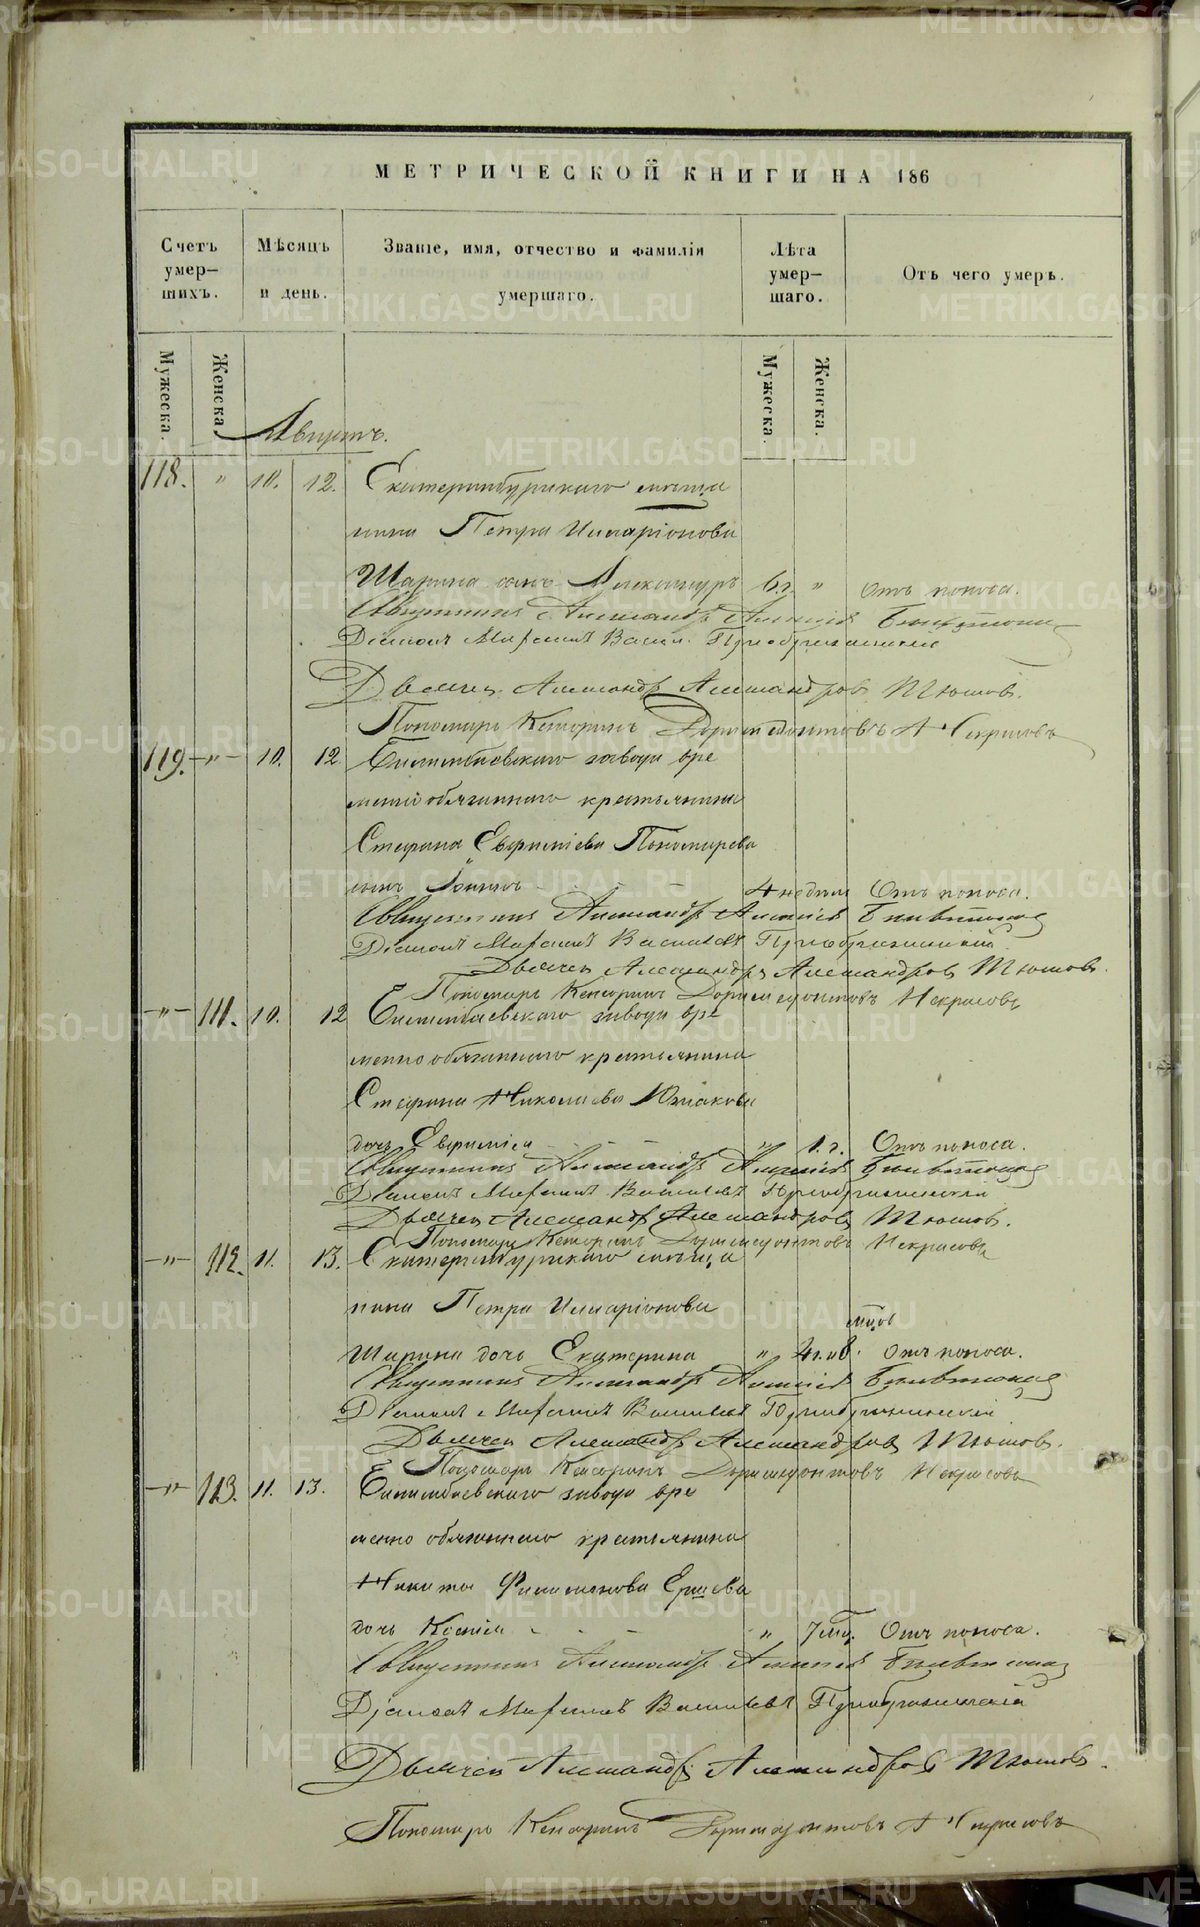 МЕТРИЧЕСКОЙ КНИГИ НА 186
Счетъ умер-шихъ.
Мѣсяцъ и день.
Званіе, имя, отчество и фамилія умершаго.
Лѣта умер-шаго.
Отъ чего умеръ.
Мужеска. Женска. Мужеска. Женска.
Августъ.
118. " 10. 12. Екатеринбургскаго мѣща
нина Петра Илларіонова
Шарина сынъ Александръ 6 г. " Отъ поноса.
Священникъ Александръ Алексіевъ
Діаконъ Василь. Преображенскій
Дьячекъ Александръ Александровъ Тюшовъ.
Пономарь Кенсоринъ Доримедонтовъ Некрасовъ
119. —"— 10. 12. Билимбаевскаго завода вре
менно обязаннаго крестьянина
Стефана Евфиміева Пономарева
сынъ 4 недѣли Отъ поноса.
Священникъ Александръ Алексіевъ
Діаконъ Васильевъ Преображенскій
Дьячекъ Александръ Александровъ Тюшовъ.
Пономарь Кенсоринъ Доримедонтовъ Некрасовъ
—"— 111. 10. 12 Билимбаевскаго завода вре
менно обязаннаго крестьянина
Стефана Николаева
дочь Евфимія " 1. г. Отъ поноса.
Священникъ Александръ Алексіевъ
Діаконъ Васильевъ Преображенскій
Дьячекъ Александръ Александровъ Тюшовъ.
Пономарь Кенсоринъ Доримедонтовъ Некрасовъ
—"— 112. 11. 13. Екатеринбургскаго мѣща
нина Петра Илларіонова
Шарина дочь Екатерина " Отъ поноса.
Священникъ Александръ Алексіевъ
Діаконъ Васильевъ Преображенскій
Дьячекъ Александръ Александровъ Тюшовъ.
Пономарь Кенсоринъ Доримедонтовъ Некрасовъ
—"— 113. 11. 13. Билимбаевскаго завода вре
менно обязаннаго крестьянина
Никиты Филимонова Ершева
дочь Ксенія " 7 мѣ. Отъ поноса.
Священникъ Александръ Алексіевъ
Діаконъ Васильевъ Преображенскій
Дьячекъ Александръ Александровъ Тюшовъ.
Пономарь Кенсоринъ Доримедонтовъ Некрасовъ
METRIKI.GASO-URAL.RU